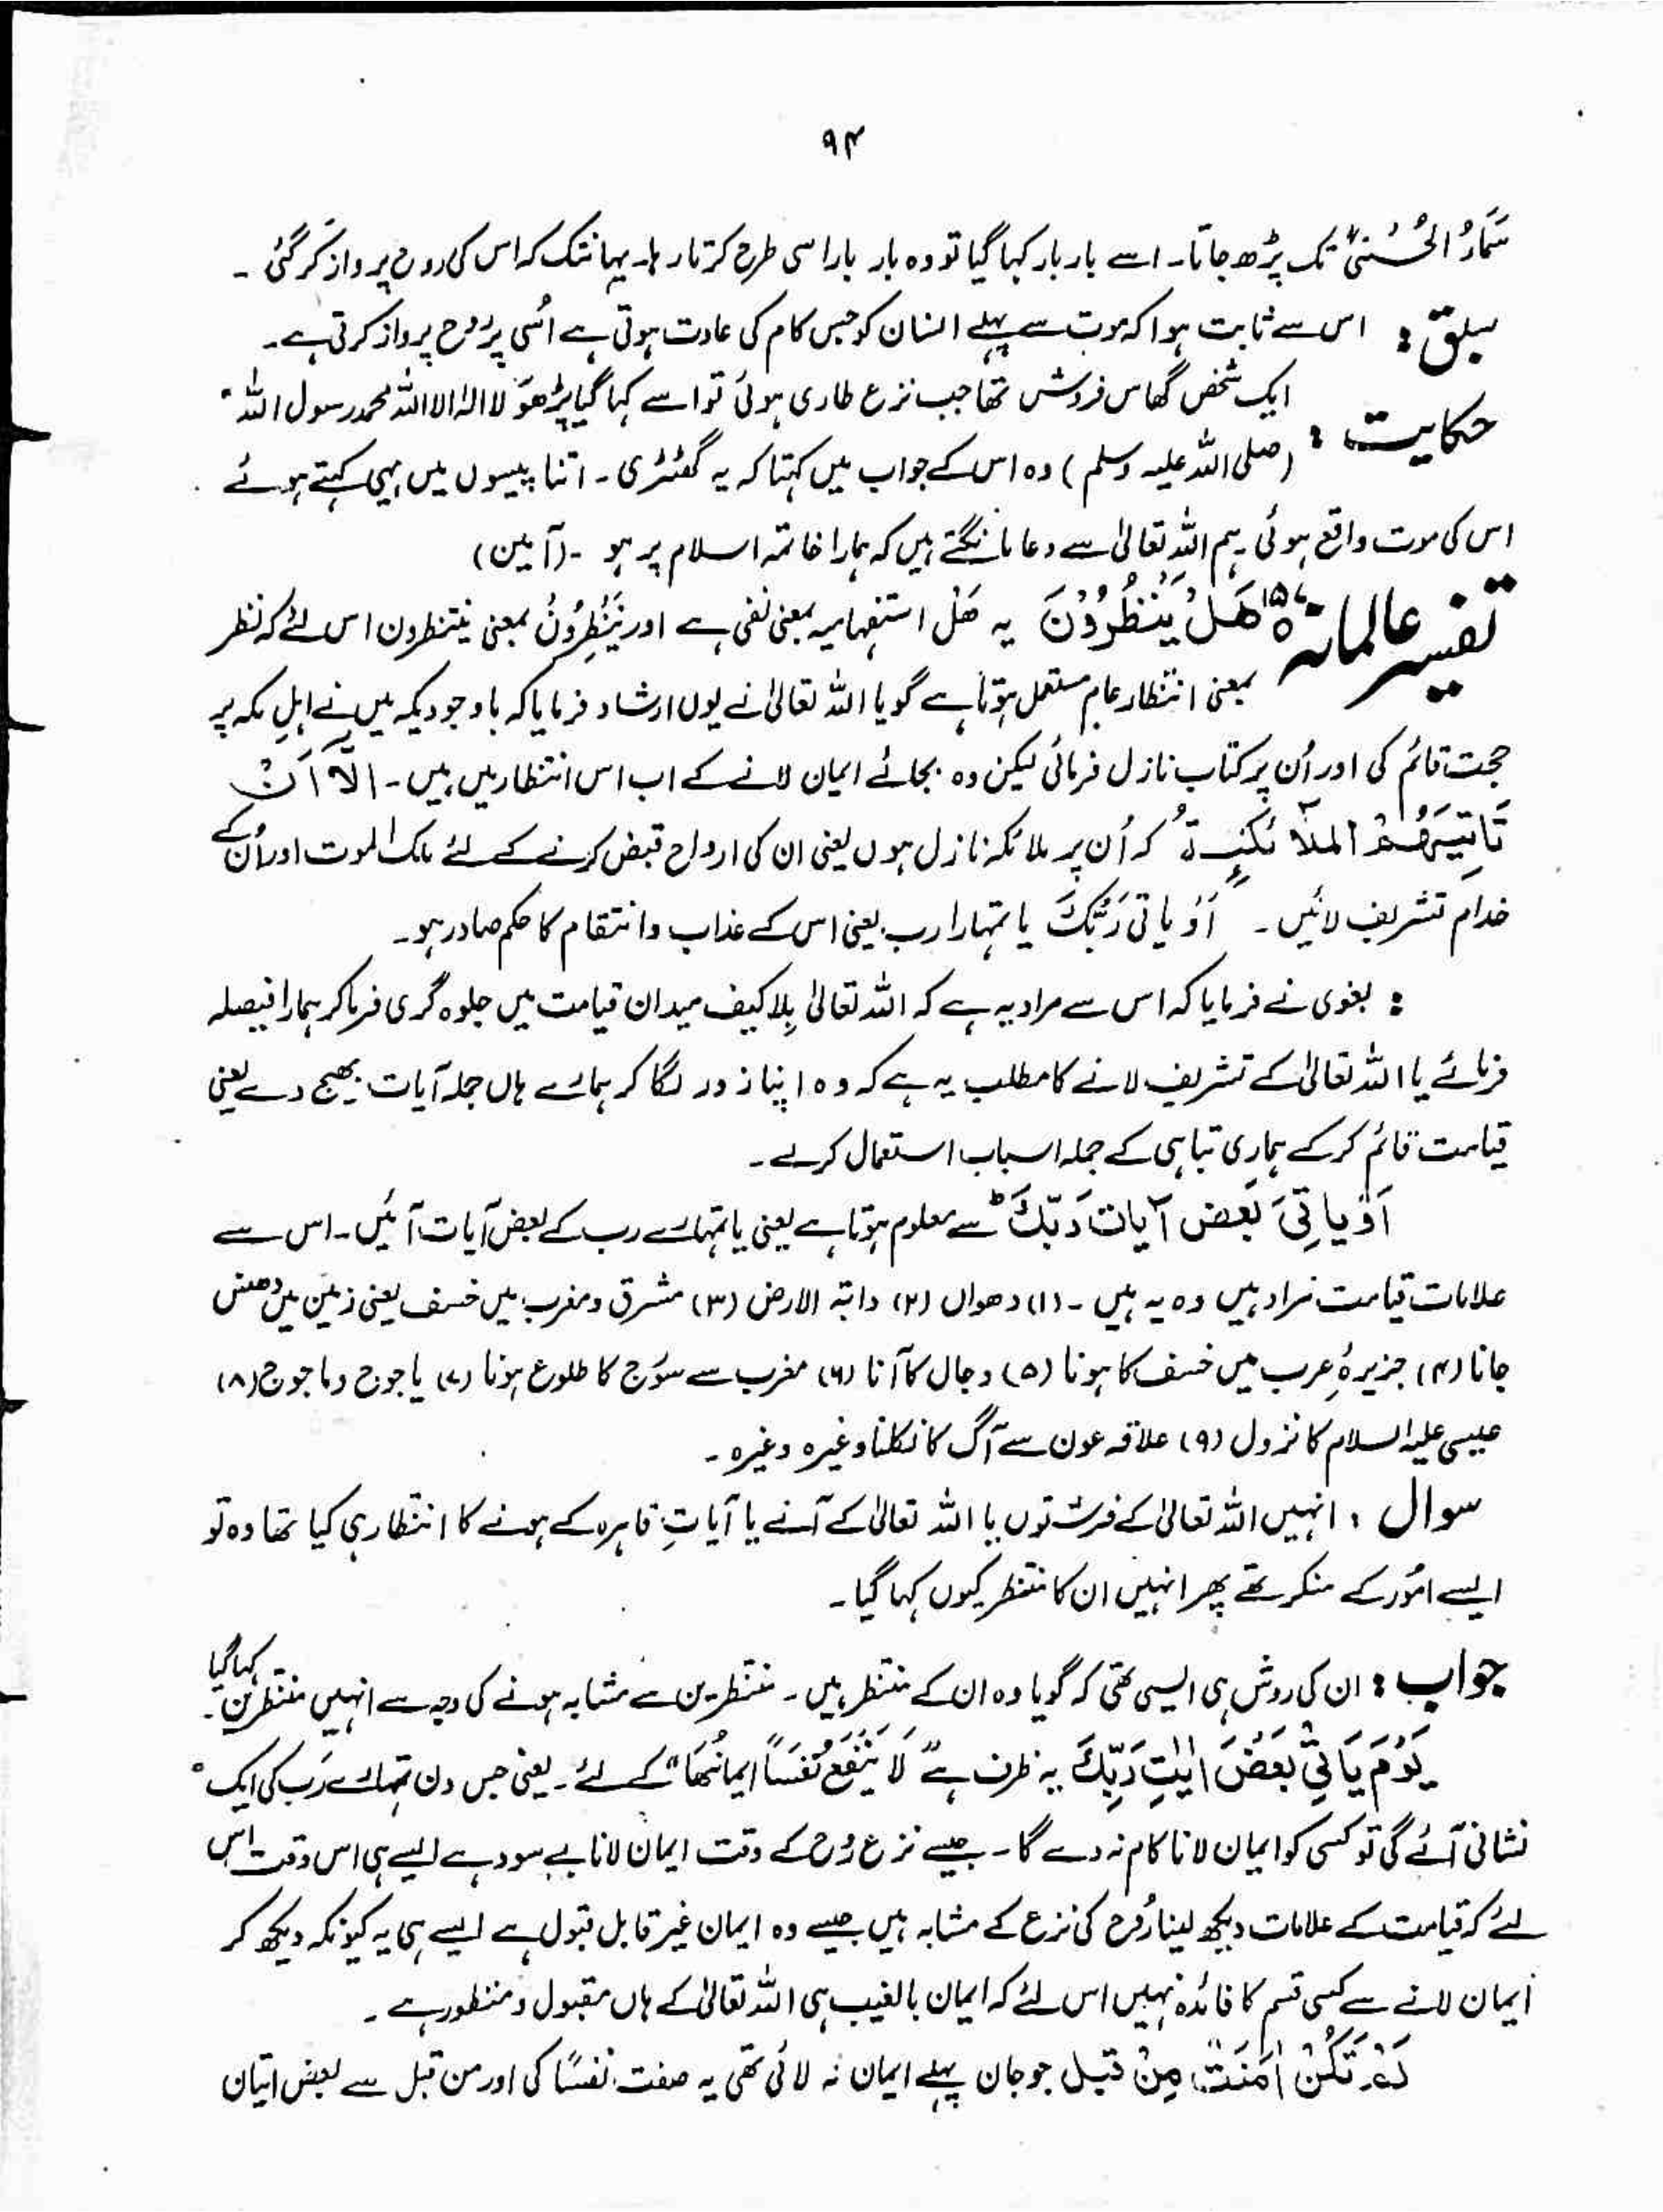 ۹۴
سَمَآءُ الْحُسْنیٰ" تک پڑھ جاتا۔ اسے بار بار کہا گیا تو وہ بار بار اسی طرح کرتا رہا۔ یہانتک کہ اس کی روح پرواز کر گئی ۔
سبق : اس سے ثابت ہوا کہ موت سے پہلے انسان کو جس کام کی عادت ہوتی ہے اُسی پر رُوح پرواز کرتی ہے۔
حکایت : ایک شخص گھاس فروش تھا جب نزع طاری ہوئی تو اسے کہا گیا پڑھو لا الہٰ الا اللہ محمد رسول اللہ"
(صلی اللہ علیہ وسلم) وہ اس کے جواب میں کہتا کہ یہ گٹھڑی ۔ اتنا پیسوں میں یہی کہتے ہوئے
اس کی موت واقع ہوئی ۔ہم اللہ تعالیٰ سے دعا مانگتے ہیں کہ ہمارا خاتمہ اسلام پر ہو ۔(آمین)
تفسیر عالمانہ ۱۵۸ هَلْ يَنْظُرُوْنَ یہ هَلْ استفہامیہ بمعنی نفی ہے اور یَنْظِرُوْنُ بمعنی ینتظرون اس لئے کہ نظر
بمعنی انتظار عام مستعمل ہوتا ہے گویا اللہ تعالیٰ نے یوں ارشاد فرمایا کہ باوجودیکہ میں نے اہلِ مکہ پر
حجت قائم کی اور اُن پر کتاب نازل فرمائی لیکن وہ بجائے ایمان لانے کے اب اس انتظار میں ہیں ۔ الآ اَنْ
تَاتِیَهُمُ الملآئکۃُ کہ اُن پر ملائکہ نازل ہوں یعنی ان کی ارواح قبض کرنے کے لئے ملک الموت اور اُن کے
خدام تشریف لائیں ۔ اَوْ یاتی رَبُّكَ یا تمہارا رب یعنی اس کے عذاب وانتقام کا حکم صادر ہو۔
: بغوی نے فرمایا کہ اس سے مراد یہ ہے کہ اللہ تعالیٰ بِلا کیف میدان قیامت میں جلوہ گری فرما کر ہمارا فیصلہ
فرمائے یا اللہ تعالیٰ کے تشریف لانے کا مطلب یہ ہے کہ وہ اپنا زور لگا کر ہمارے ہاں جملہ آیات بھیج دے یعنی
قیامت قائم کر کے ہماری تباہی کے جملہ اسباب استعمال کرلے ۔
اَوْ یاتِیَ بَعض آیات رَبّكَ ط سے معلوم ہوتا ہے یعنی یا تمہارے رب کے بعض آیات آئیں ۔ اس سے
علامات قیامت مراد ہیں وہ یہ ہیں ۔ (۱) دھواں (۲) دابۃ الارض (۳) مشرق ومغرب میں خسف یعنی زمین میں دھنس
جانا (۴) جزیرۂ عرب میں خسف کا ہونا (۵) دجال کا آنا (۶) مغرب سے سُورج کا طلوع ہونا (۷) یا جوج وما جوج (۸)
عیسیٰ علیہ السلام کا نزول (۹) علاقہ عون سے آگ کا نکلنا وغیرہ وغیرہ ۔
سوال : انہیں اللہ تعالیٰ کے فرشتوں یا اللہ تعالیٰ کے آنے یا آیاتِ قاہرہ کے ہونے کا انتظار ہی کیا تھا وہ تو
ایسے امُور کے منکر تھے پھر انہیں ان کا منتظر کیوں کہا گیا ۔
جواب : ان کی روش ہی ایسی تھی کہ گویا وہ ان کے منتظر ہیں ۔ منتظرین سے مشابہ ہونے کی وجہ سے انہیں منتظرین کہا گیا ۔
یَوْمَ یَاتِیْ بَعْضُ اٰیٰتِ رَبِّكَ یہ ظرف ہے "لَا یَنْفَعُ نَفْسًا اِیمانُهَا" کے لئے ۔ یعنی جس دن تمہارے رَب کی ایک
نشانی آئے گی تو کسی کو ایمان لانا کام نہ دے گا ۔ جیسے نزع رُوح کے وقت ایمان لانا بے سود ہے ایسے ہی اس وقت اس
لئے کہ قیامت کے علامات دیکھ لینا رُوح کی نزع کے مشابہ ہیں جیسے وہ ایمان غیر قابل قبول ہے ایسے ہی یہ کیونکہ دیکھ کر
ایمان لانے سے کسی قسم کا فائدہ نہیں اس لئے کہ ایمان بالغیب ہی اللہ تعالیٰ کے ہاں مقبول و منظور ہے ۔
لَمْ تَكُنْ اٰمَنَتْ مِنْ قبل جو جان پہلے ایمان نہ لائی تھی یہ صفت نفسًا کی اور من قبل سے بعض اتیان